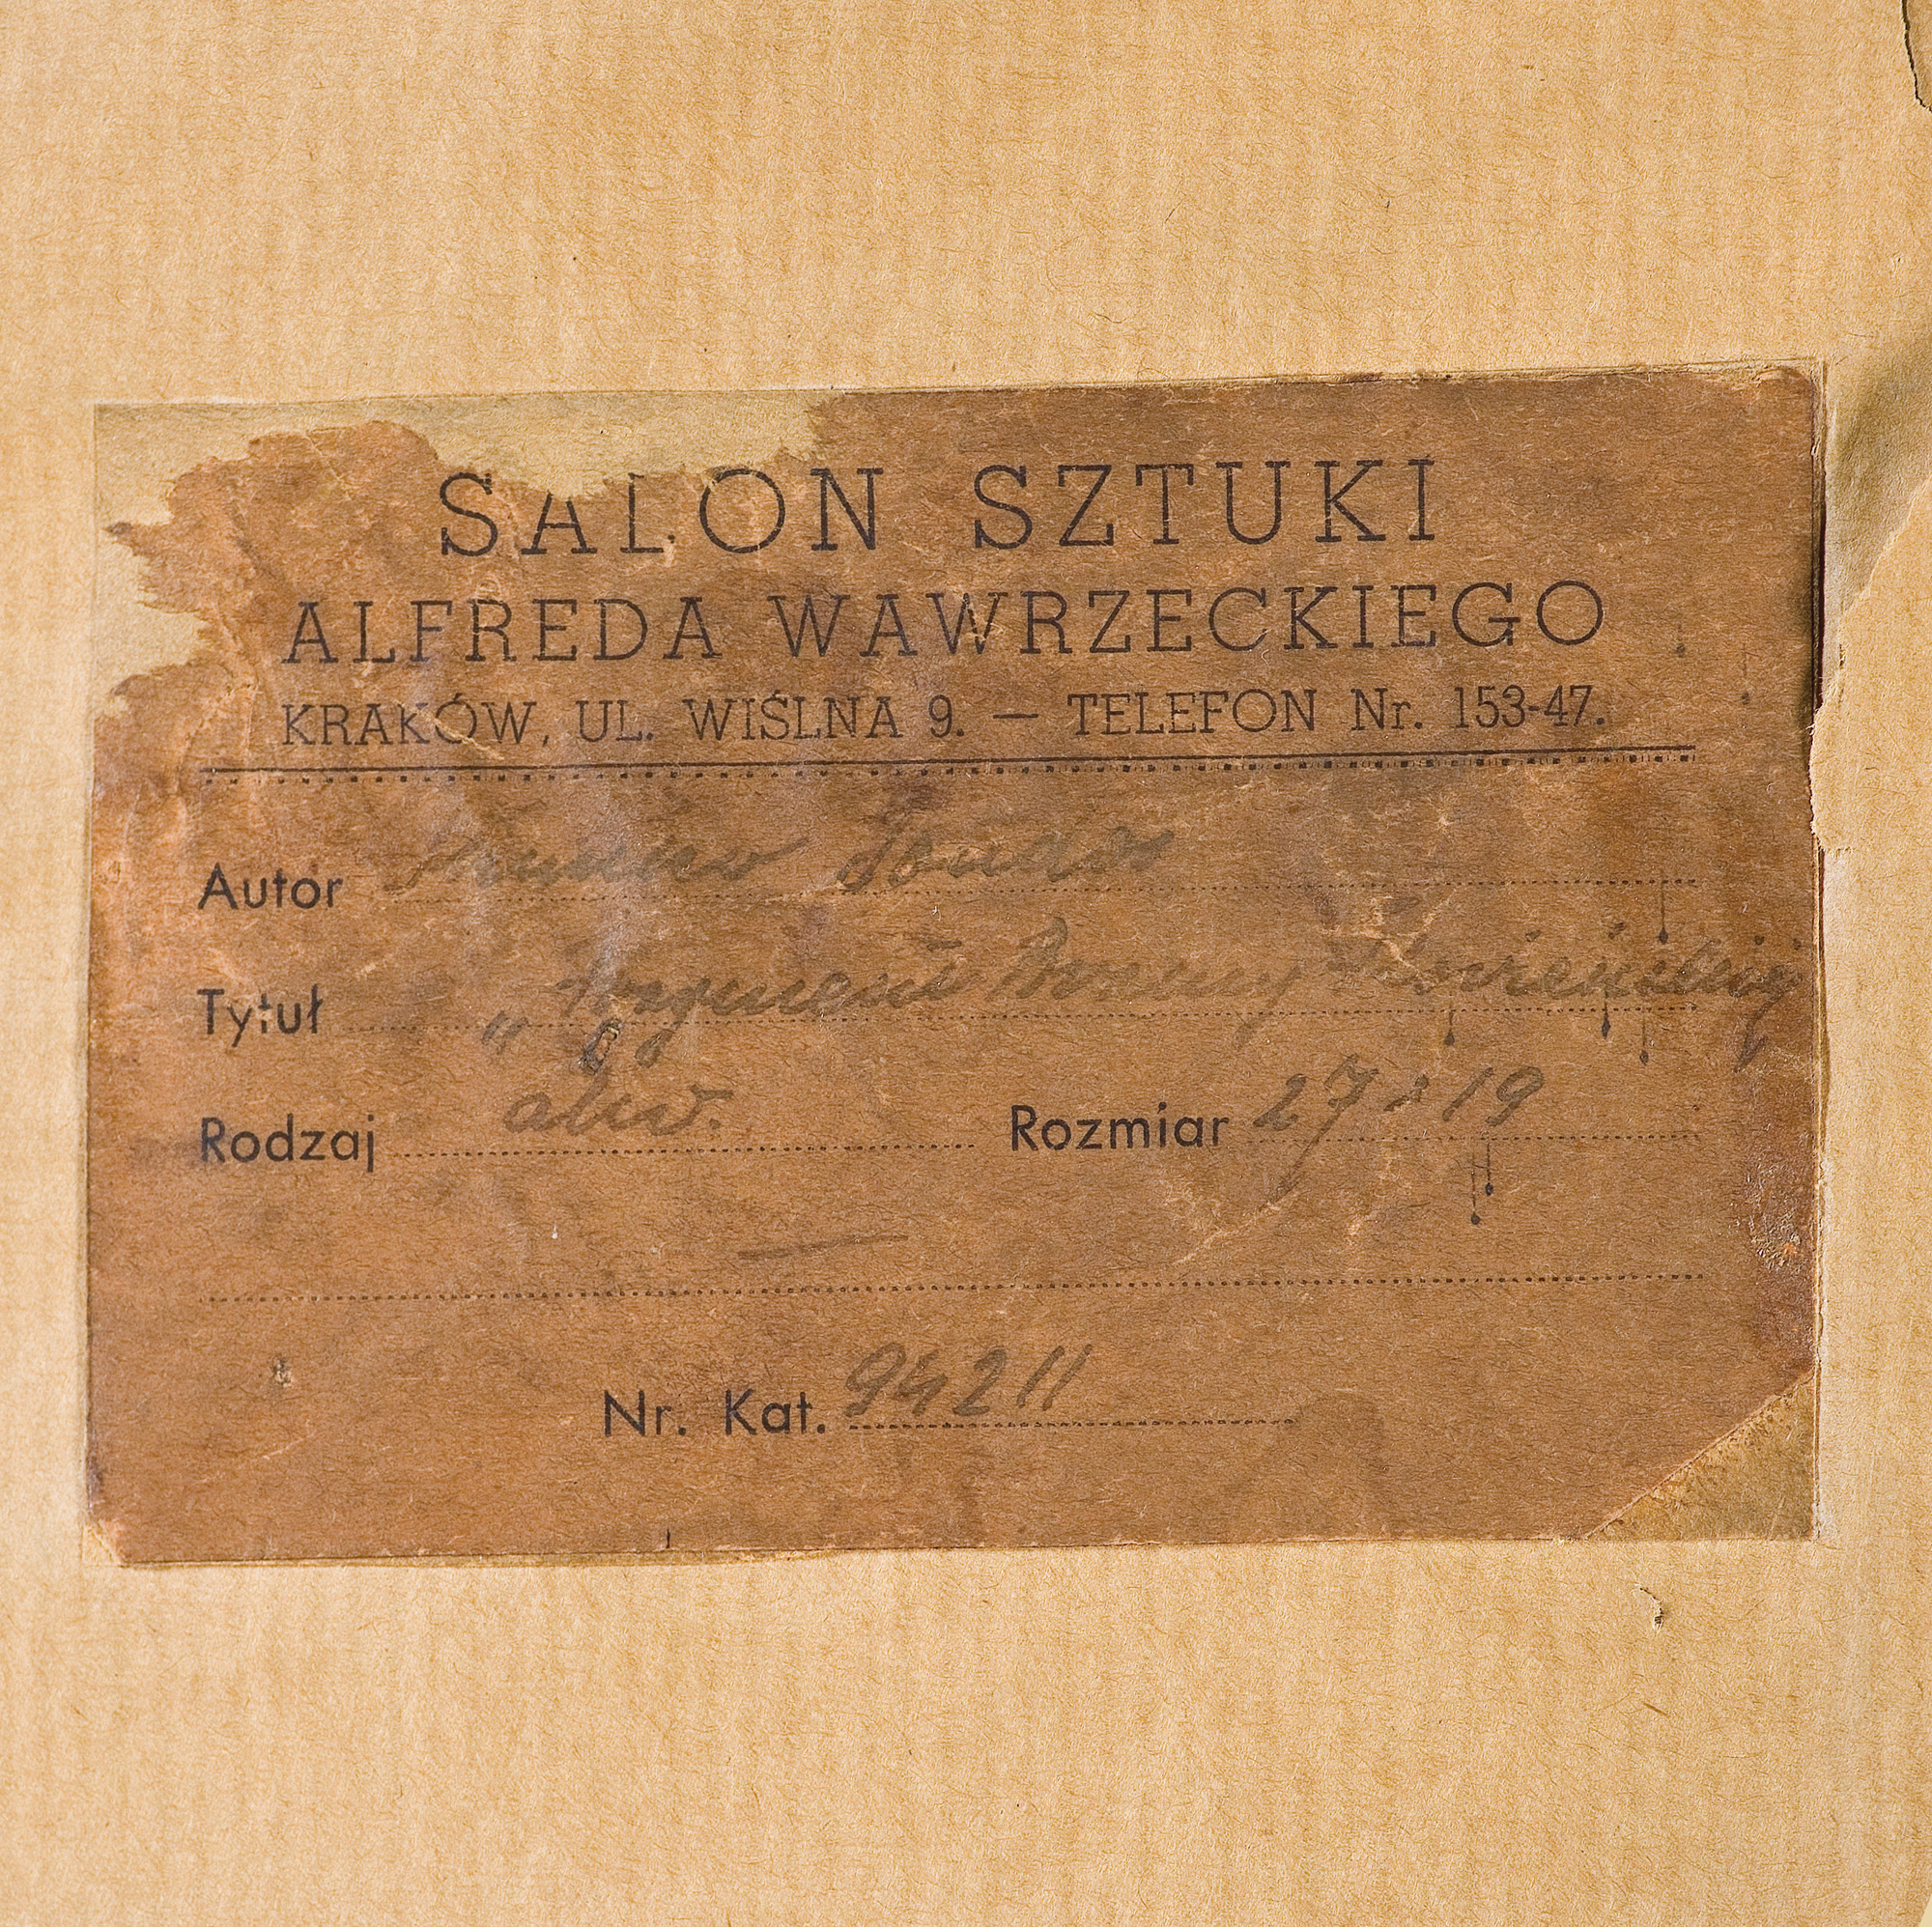 SALON SZTUKI
ALFREDA WAWRZECKIEGO
KRAKÓW, UL. WIŚLNA 9. — TELEFON Nr. 153-47.
Autor
Tytuł „Fragment Bramy
Rodzaj akw. Rozmiar 27 x 19
Nr. Kat. 94211